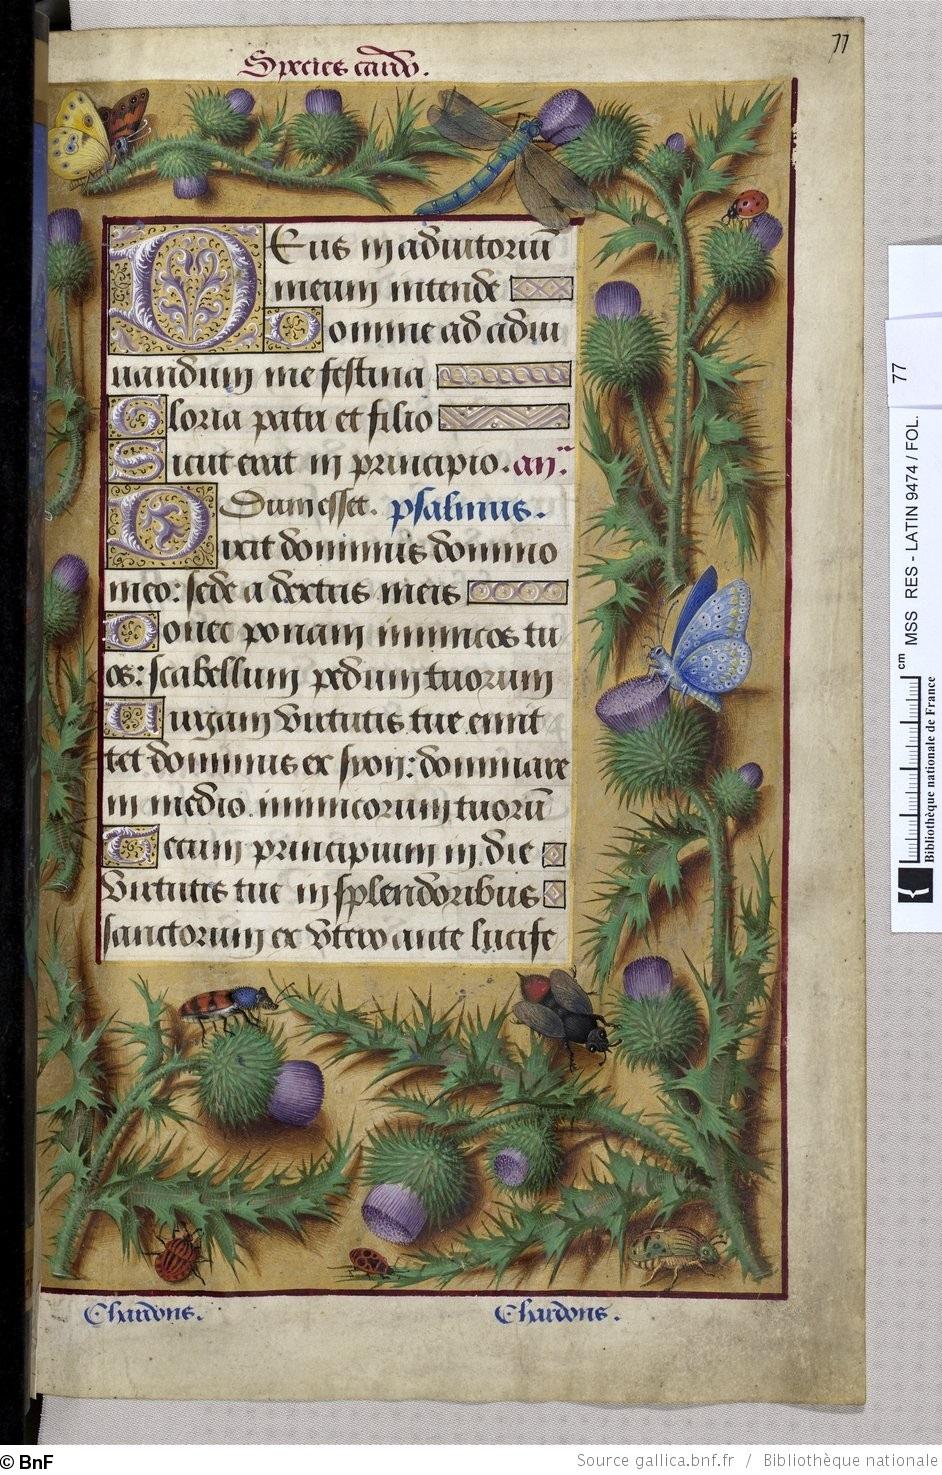 77
Species cardo.
Deus in adiutoriū
meum intende
Domine ad adiu
uandum me festina
Gloria patri et filio
Sicut erat in principio. an̄.
Dum esset. psalmus.
Dixit dominus domino
meo: sede a dextris meis
Donec ponam inimicos tu
os: scabellum pedum tuorum
Uirgam virtutis tue emit
tet dominus ex syon: dominare
in medio inimicorum tuorū
Tecum principium in die
virtutis tue in splendoribus
sanctorum ex vtero ante lucife
Chardons.
Chardons.
77
MSS RES - LATIN 9474 / FOL.
cm
Bibliothèque nationale de France
© BnF
Source gallica.bnf.fr / Bibliothèque nationale